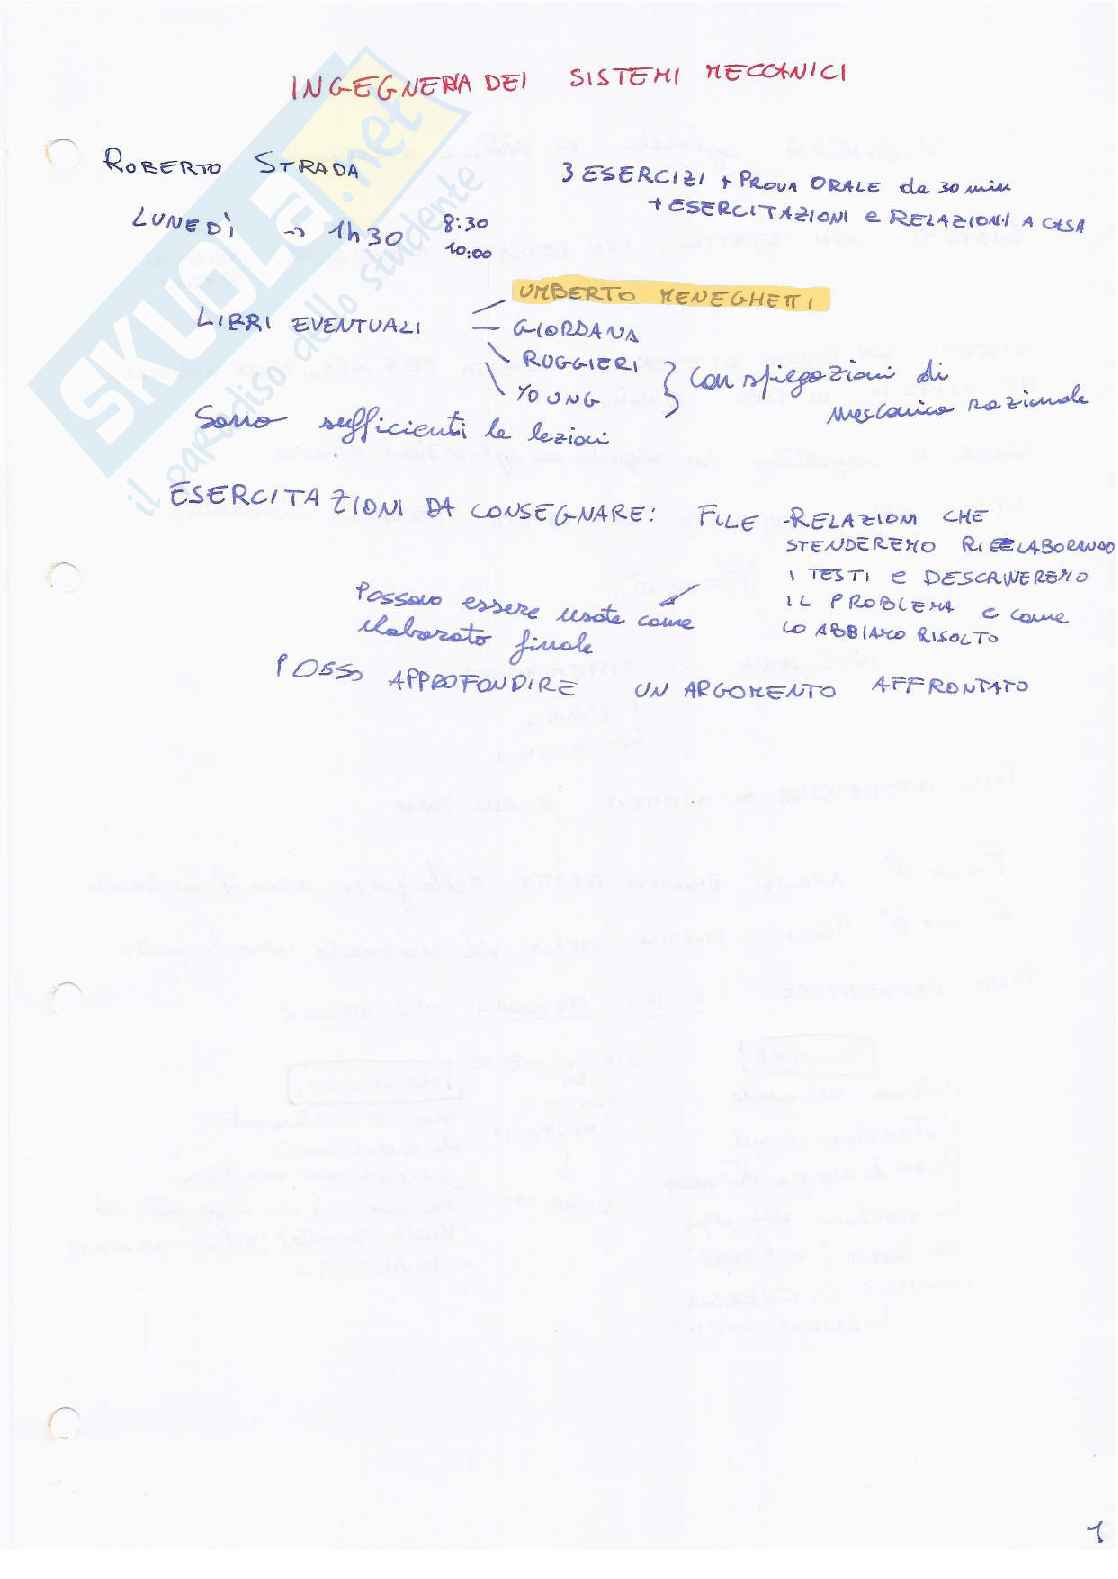 INGEGNERIA DEI SISTEMI MECCANICI
ROBERTO STRADA
3 ESERCIZI + PROVA ORALE da 30 min
+ ESERCITAZIONI e RELAZIONI A CASA
LUNEDÌ → 1h30 8:30
10:00
UMBERTO MENEGHETTI
LIBRI EVENTUALI GIORDANA
RUGGIERI
YOUNG
con spiegazioni di
meccanica razionale
Sono sufficienti le lezioni
ESERCITAZIONI DA CONSEGNARE: FILE -RELAZIONI CHE
STENDEREMO RIELABORANDO
I TESTI e DESCRIVEREMO
IL PROBLEMA e come
LO ABBIAMO RISOLTO
Possono essere usate come
elaborato finale
POSSO APPROFONDIRE UN ARGOMENTO AFFRONTATO
SKUOLA.net
il paradiso dello studente
1